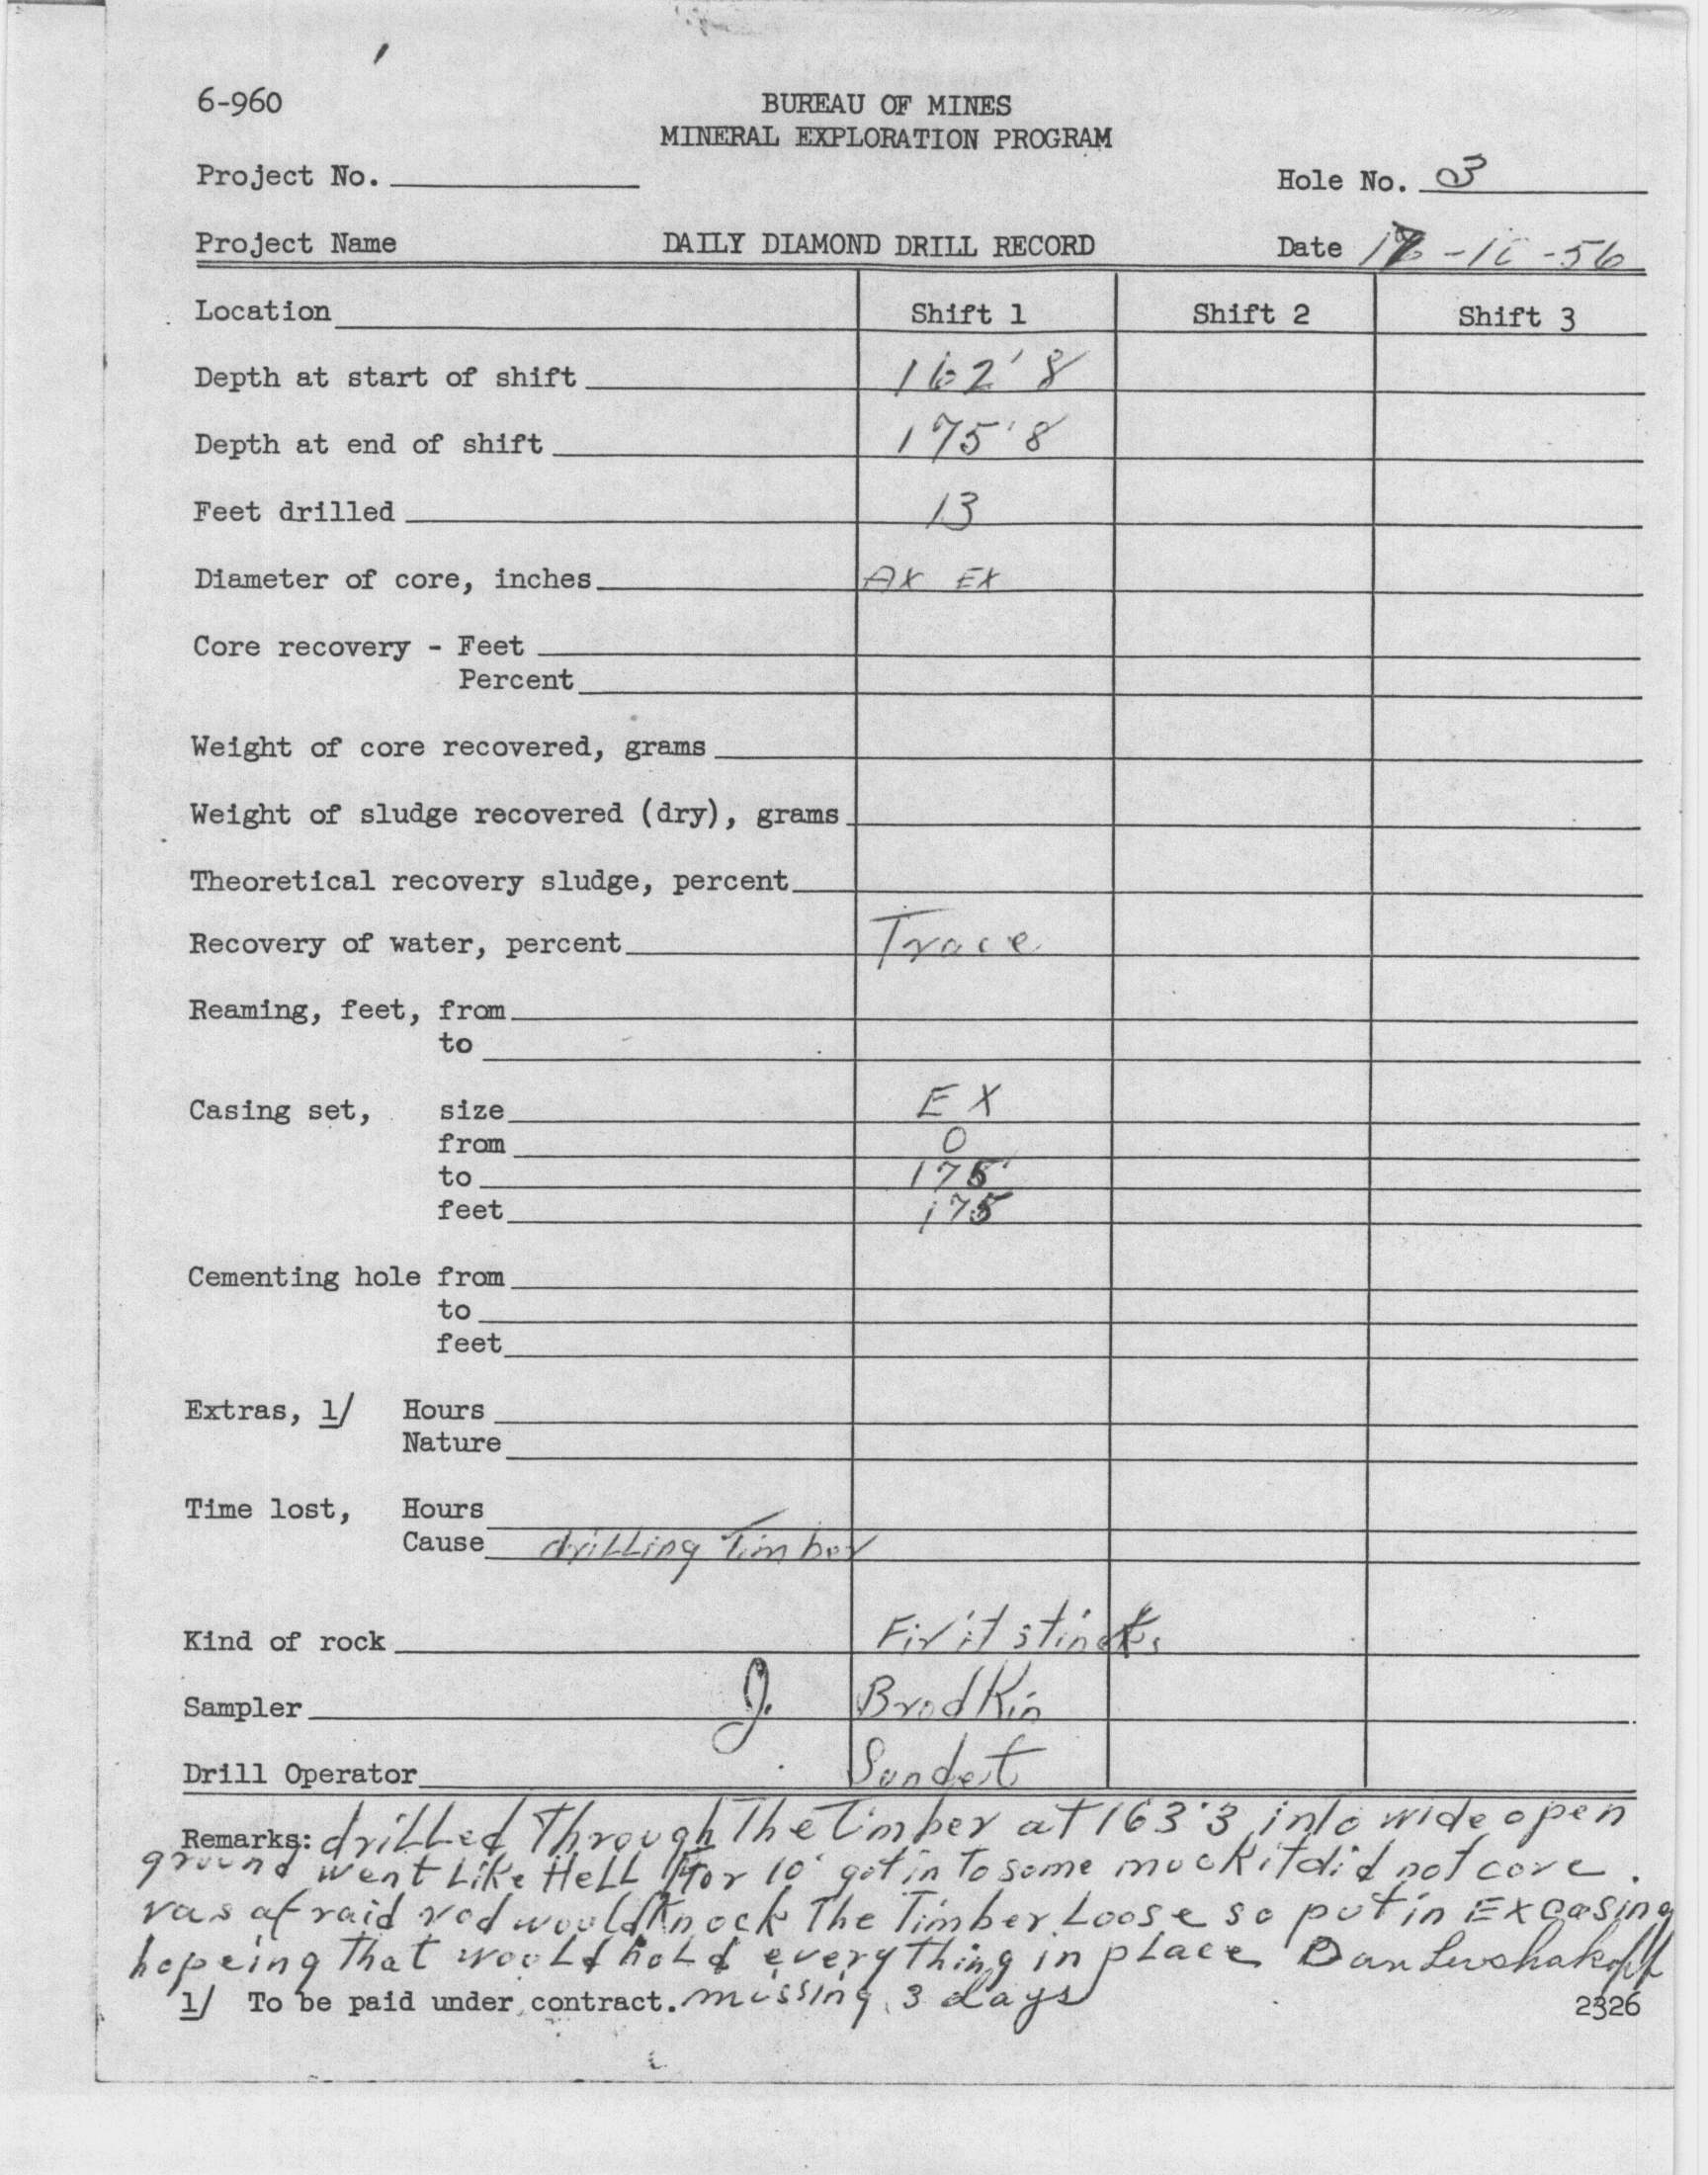 6-960
BUREAU OF MINES
MINERAL EXPLORATION PROGRAM
Project No. Hole No. 3
Project Name DAILY DIAMOND DRILL RECORD Date -56
Location Shift 1 Shift 2 Shift 3
Depth at start of shift 162'8
Depth at end of shift 175'8
Feet drilled 13
Diameter of core, inches AX EX
Core recovery - Feet
Percent
Weight of core recovered, grams
Weight of sludge recovered (dry), grams
Theoretical recovery sludge, percent
Recovery of water, percent Trace
Reaming, feet, from
to
Casing set, size EX
from 0
to 175'
feet 175
Cementing hole from
to
feet
Extras, 1/ Hours
Nature
Time lost, Hours
Cause drilling Timber
Kind of rock Fir it
Sampler J. Brodkin
Drill Operator
Remarks: drilled Through The Timber at 163'3 into wide open
ground went Like HeLL For 10' got in To some muck it did not core.
was afraid rod would Knock The Timber Loose so put in EX casing
hopeing That would hoLd everything in place Dan
1/ To be paid under contract. missing 3 days 2326